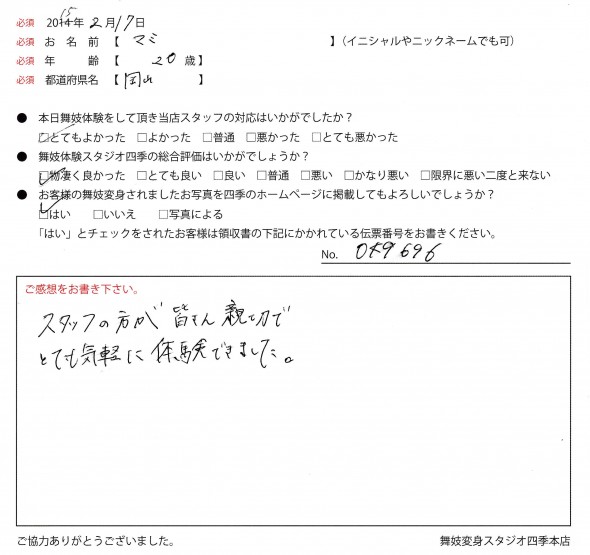 必須 2014年2月17日
15
必須 お名前【 マミ 】(イニシャルやニックネームでも可)
必須 年 齢【 20 歳】
必須 都道府県名【 岡山 】
● 本日舞妓体験をして頂き当店スタッフの対応はいかがでしたか?
□とてもよかった □よかった □普通 □悪かった □とても悪かった
● 舞妓体験スタジオ四季の総合評価はいかがでしょうか?
□物凄く良かった □とても良い □良い □普通 □悪い □かなり悪い □限界に悪い二度と来ない
● お客様の舞妓変身されましたお写真を四季のホームページに掲載してもよろしいでしょうか?
□はい □いいえ □写真による
「はい」とチェックをされたお客様は領収書の下記にかかれている伝票番号をお書きください。
No. 059696
ご感想をお書き下さい。
スタッフの方が皆さん親切で
とても気軽に体験できました。
ご協力ありがとうございました。 舞妓変身スタジオ四季本店